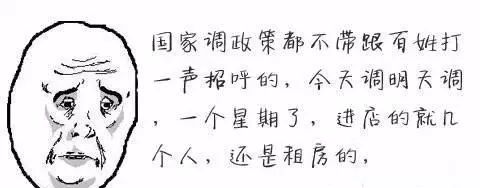 国家调政策都不带跟百姓打
一声招呼的，今天调明天调
，一个星期了，进店的就几
个人，还是租房的，